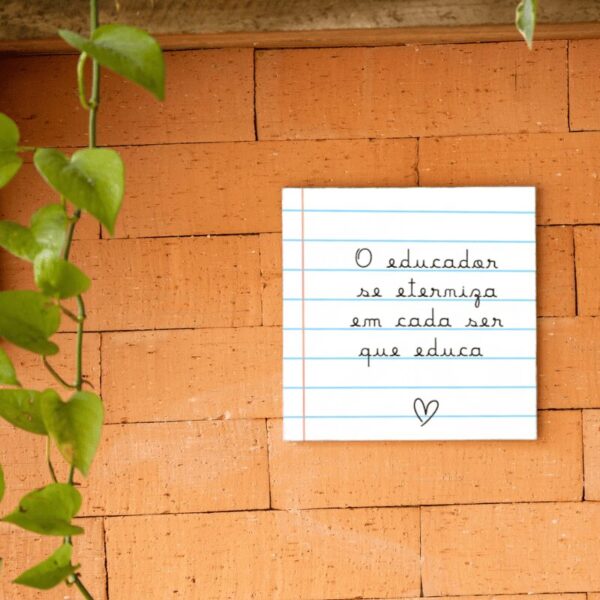 O educador
se eterniza
em cada ser
que educa